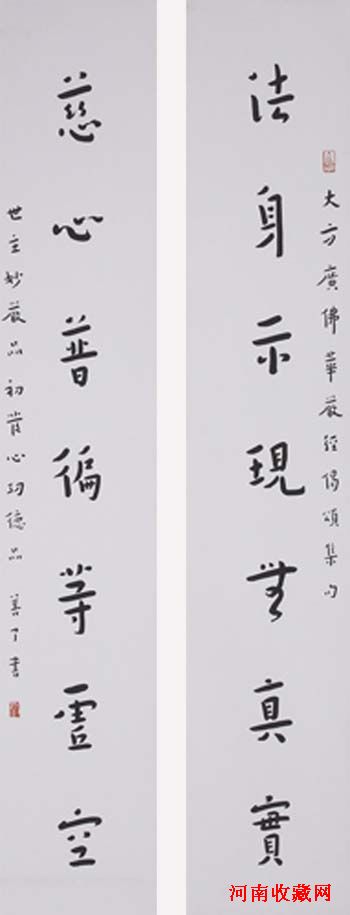 大方廣佛華嚴經偈頌集句
法身示現無真實
慈心普徧等虛空
世主妙嚴品初發心功德品 善了書
河南收藏网